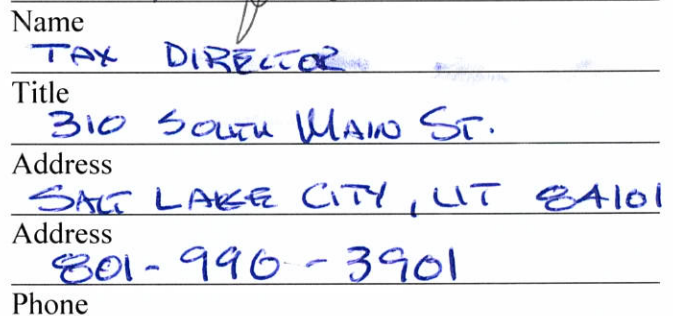 Name
TAX DIRECTOR
Title
310 SOUTH MAIN ST.
Address
SALT LAKE CITY, UT 84101
Address
801-990-3901
Phone